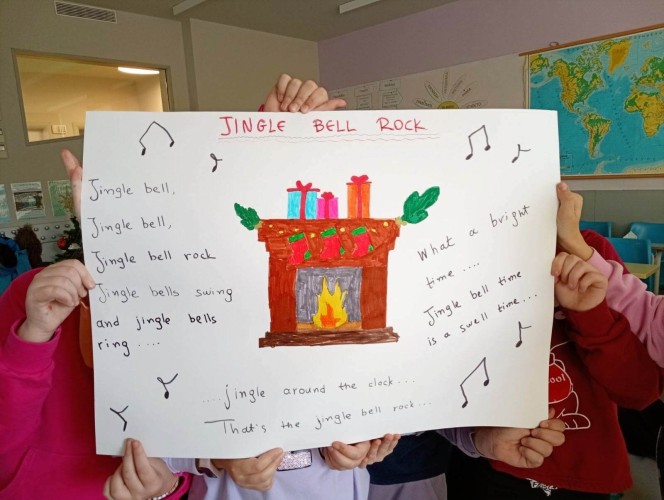 JINGLE BELL ROCK
Jingle bell,
Jingle bell,
Jingle bell rock
Jingle bells swing
and jingle bells
ring ....
What a bright
time ....
Jingle bell time
is a swell time...
...jingle around the clock...
That's the jingle bell rock...